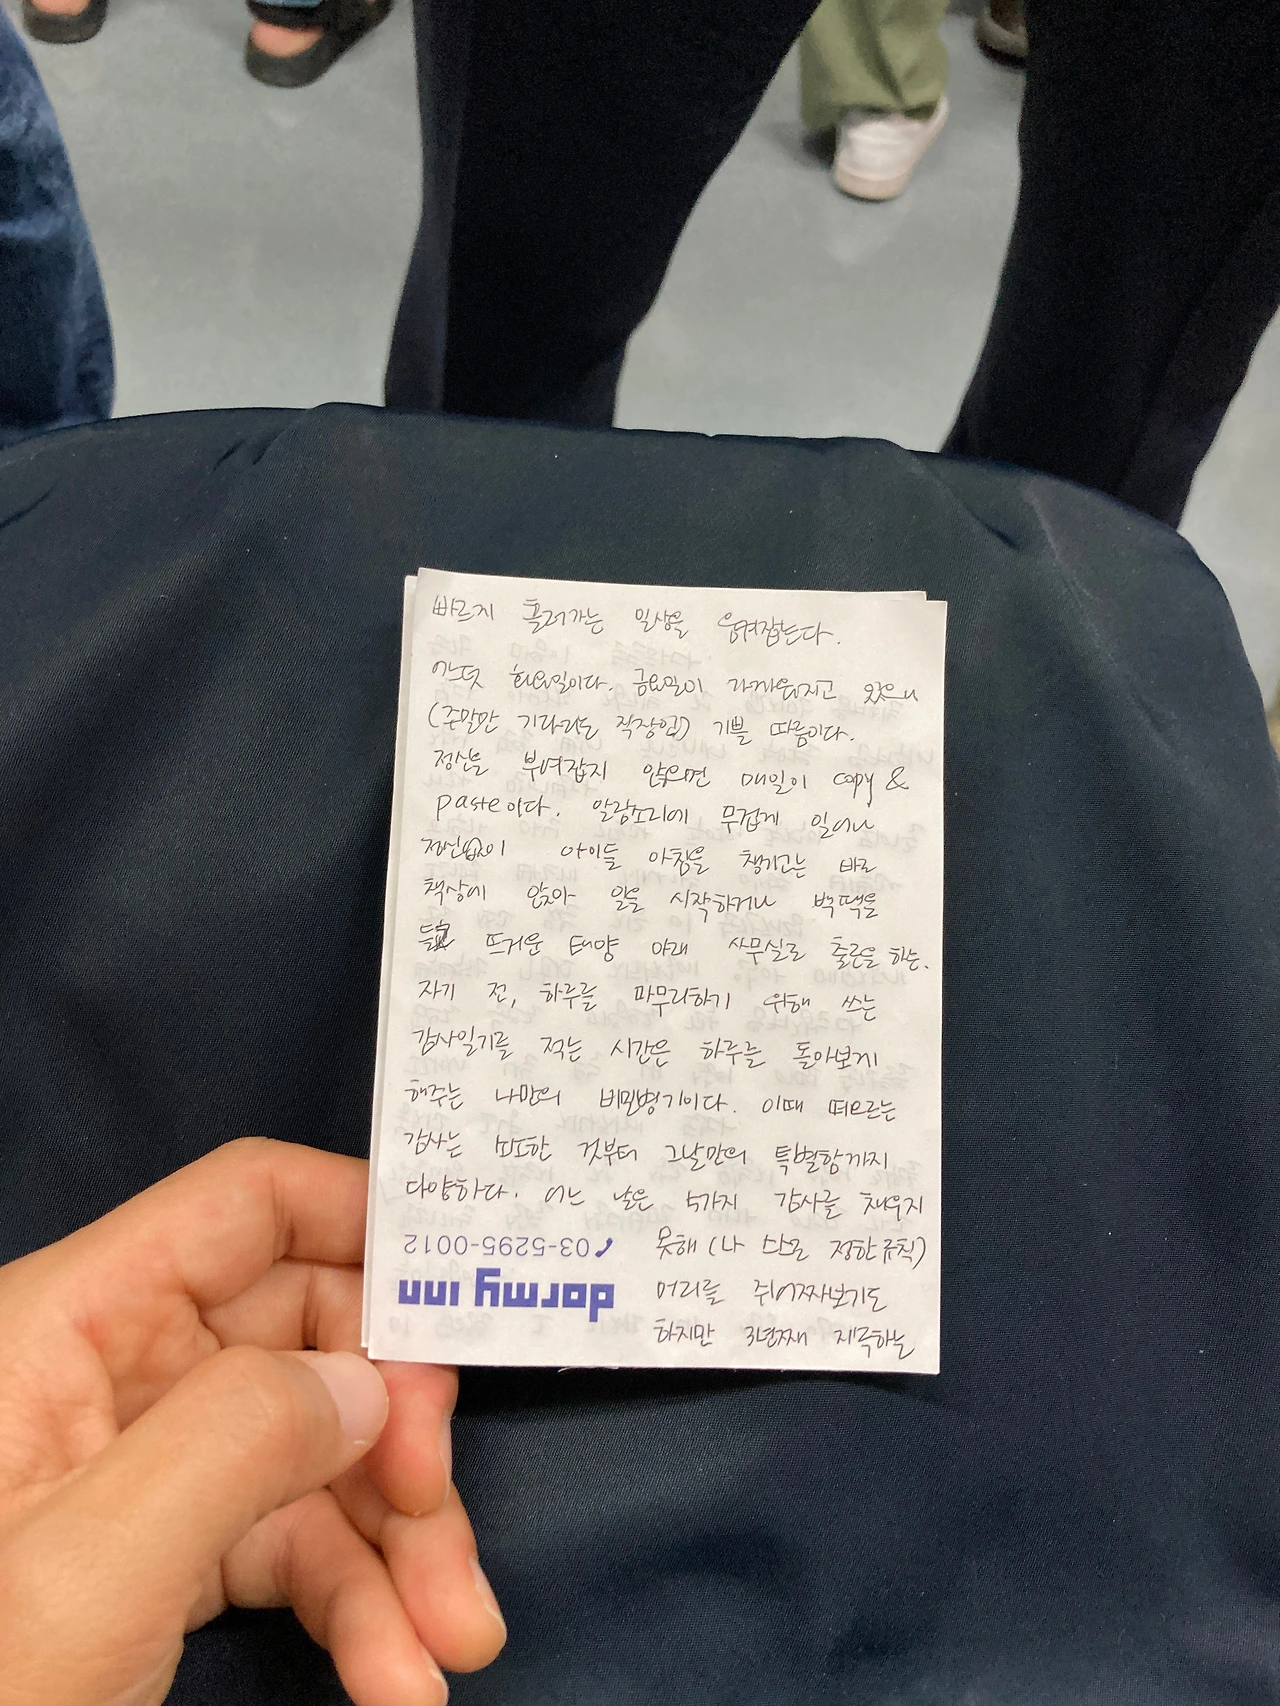 빠르지 흘러가는 일상을 움켜잡는다.
어느덧 화요일이다. 금요일이 가까워지고 있으니
(주말만 기다리는 직장인) 기쁠 따름이다.
정신을 부여잡지 않으면 매일이 copy &
paste이다. 알람소리에 무겁게 일어나
정신없이 아이들 아침을 챙기고는 바로
책상에 앉아 일을 시작하거나 백팩을
뜨거운 태양 아래 사무실로 출근을 하는.
자기 전, 하루를 마무리하기 위해 쓰는
감사일기를 적는 시간은 하루를 돌아보게
해주는 나만의 비밀병기이다. 이때 떠오르는
감사는 사소한 것부터 그날만의 특별함까지
다양하다. 어느 날은 5가지 감사를 채우지
못해 (나 스스로 정한 규칙)
머리를 쥐어짜보기도
하지만 3년째 지속하는
03-5295-0012
dormy inn